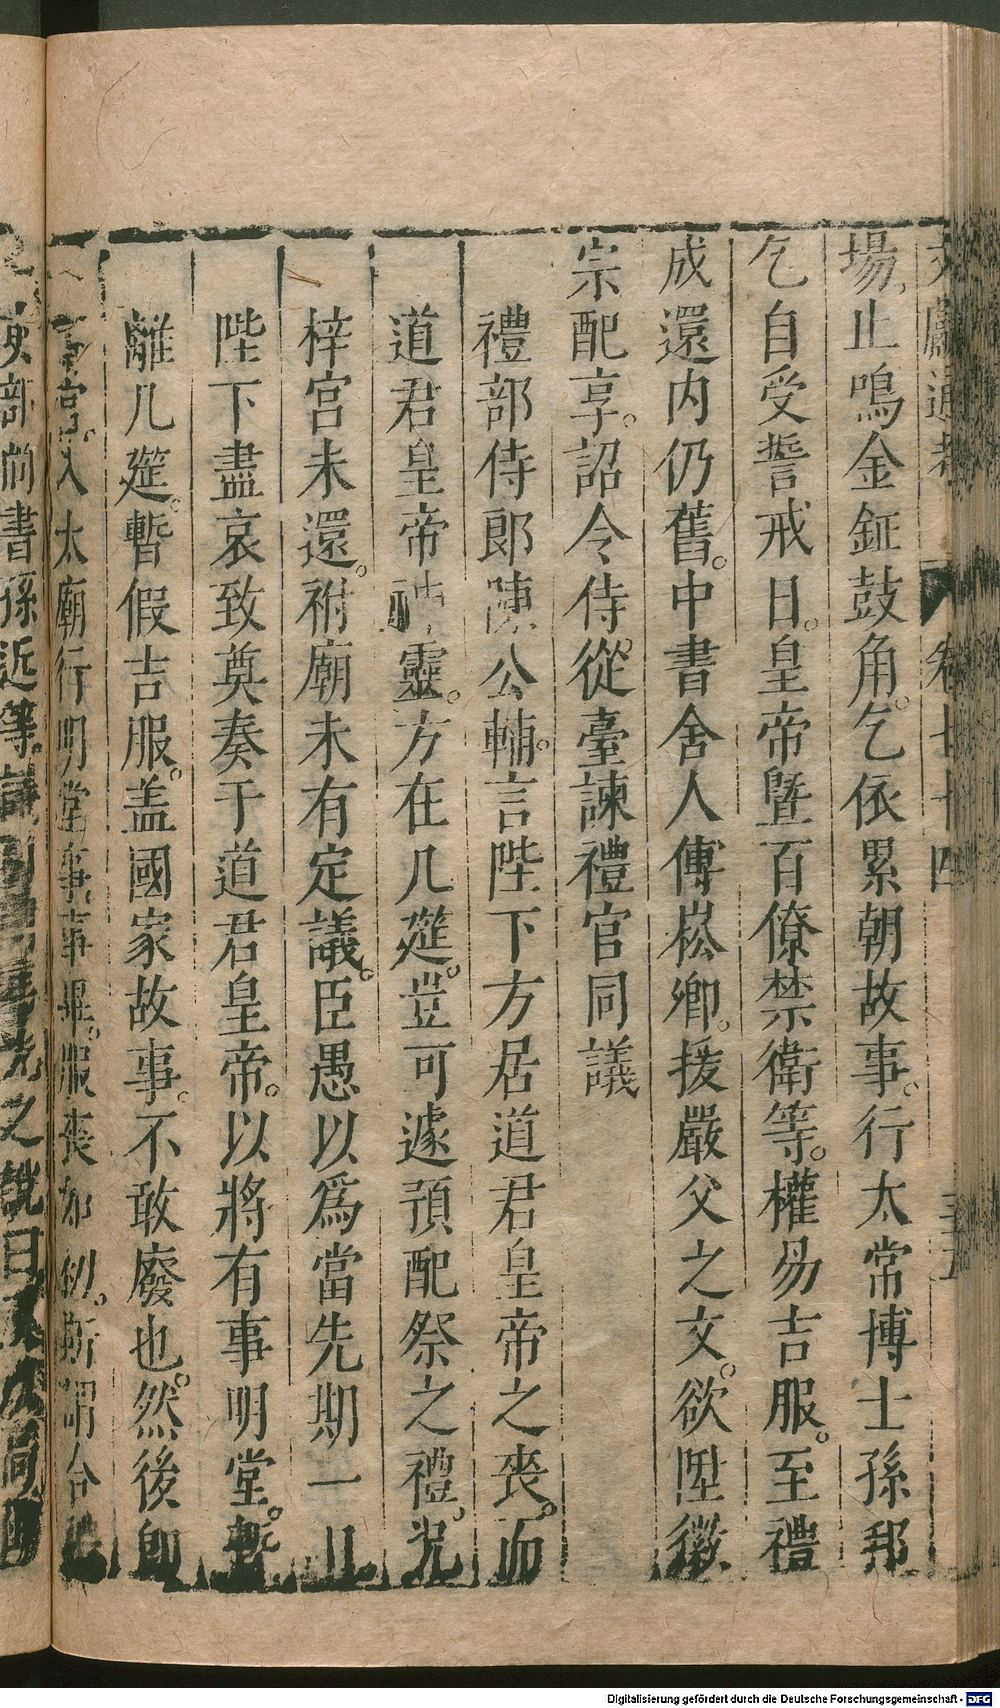 文獻通考 卷七十四
場止鳴金鉦鼓角。乞依累朝故事。行太常博士孫邦
乞自受誓戒日。皇帝曁百僚禁衛等。權易吉服。至禮
成還内仍舊。中書舍人傅崧卿。援嚴父之文。欲陞徽
宗配享。詔令侍從臺諫禮官同議
禮部侍郎陳公輔。言陛下方居道君皇帝之喪。而
道君皇帝 靈。方在几筵。豈可遽預配祭之禮。况
梓宮未還。祔廟未有定議。臣愚以爲當先期一日
陛下盡哀致奠奏于道君皇帝。以將有事明堂。暫
離几筵。暫假吉服。盖國家故事。不敢廢也。然後即
宮。入太廟行明堂事事畢。服喪如初。斯謂合
吏部尚書孫近等 之說曰
Digitalisierung gefördert durch die Deutsche Forschungsgemeinschaft - DFG